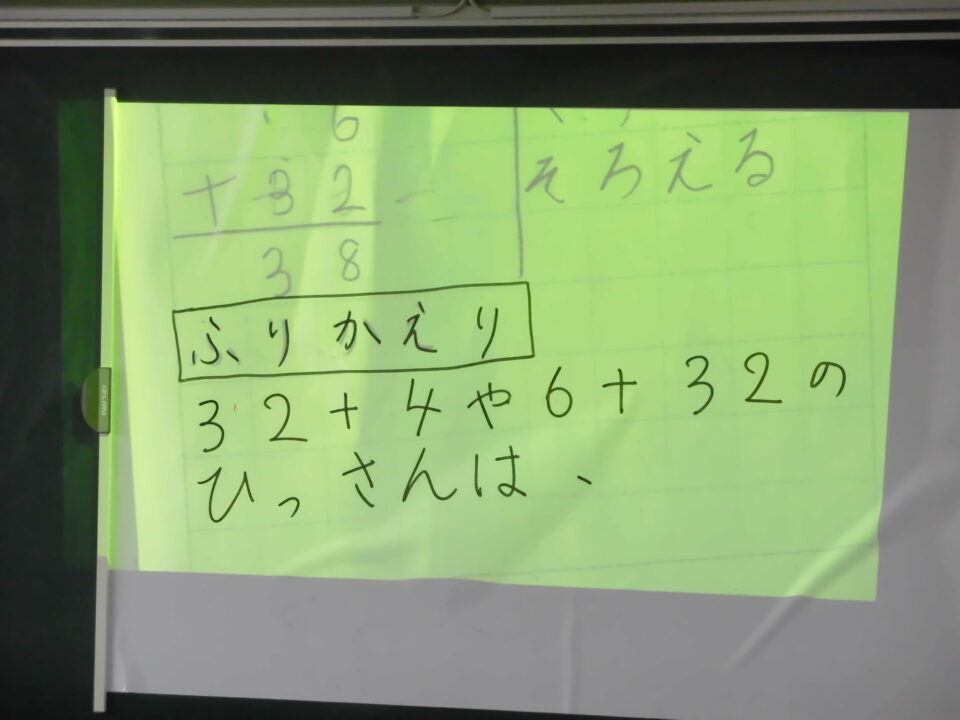 6
+32
38
そろえる
ふりかえり
32+4や6+32の
ひっさんは、